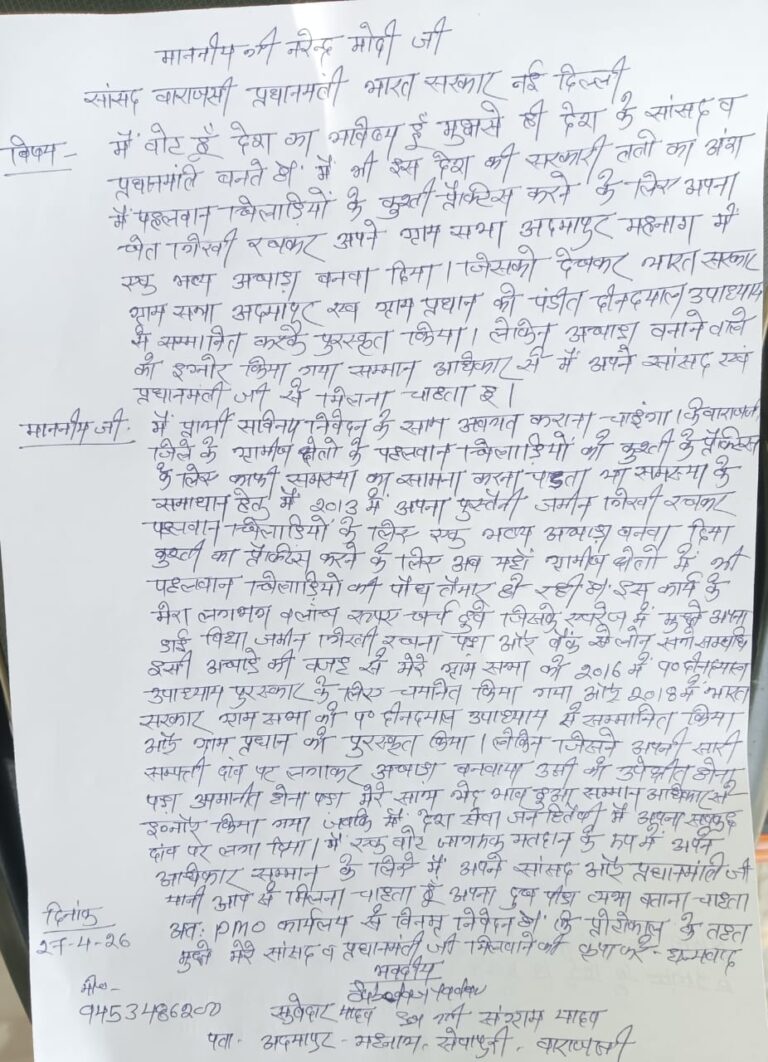 माननीय श्री नरेन्द्र मोदी जी
सांसद वाराणसी प्रधानमंत्री भारत सरकार नई दिल्ली
विषय - मैं वोट हूँ देश का भविष्य हूँ मुझसे ही देश के सांसद व
प्रधानमंत्रि बनते हैं मैं भी इस देश की सरकारी तंत्रो का अंश
मैं पहलवान खिलाड़ियों के कुश्ती प्रैक्टिस करने के लिए अपना
खेत गिरवी रखकर अपने ग्राम सभा अदमापुर महनाग में
एक भव्य अखाड़ा बनवा दिया। जिसको देखकर भारत सरकार
ग्राम सभा अदमापुर एवं ग्राम प्रधान को पंडीत दीनदयाल उपाध्याय
से सम्मानित करके पुरस्कृत किया। लेकिन अखाड़ा बनाने वाले
को इग्नोर किया गया सम्मान अधिकार से मैं अपने सांसद एवं
प्रधानमंत्री जी से मिलना चाहता हूं।
माननीय जी:- मैं प्रार्थी सविनय निवेदन के साथ अवगत कराना चाहूंगा। कि वाराणसी
जिले के ग्रामीण क्षेत्रो के पहलवान खिलाड़ियों को कुश्ती के प्रैक्टिस
के लिए काफी समस्या का सामना करना पड़ता था समस्या के
समाधान हेतु मैं 2013 में अपना पुस्तैनी जमीन गिरवी रखकर
पहलवान खिलाड़ियों के लिए एक भव्य अखाड़ा बनवा दिया
कुश्ती का प्रैक्टिस करने के लिए अब यहाँ ग्रामीण क्षेत्रो में भी
पहलवान खिलाड़ियो की पौध तैयार हो रही है। इस कार्य के
मेरा लगभग लाख रूपए खर्च हुये जिसके एवरेज में मुझे अपना
ढाई विघा जमीन गिरवी रखना पड़ा और बैंक से लोन
इसी अखाड़े की वजह से मेरे ग्राम सभा को 2016 में पं० दीनदयाल
उपाध्याय पुरस्कार के लिए चयनित किया गया और 2018 में भारत
सरकार ग्राम सभा को पं० दीनदयाल उपाध्याय से सम्मानित किया
और ग्राम प्रधान को पुरस्कृत किया। लेकिन जिसने अपनी सारी
सम्पत्ती दांव पर लगाकर अखाड़ा बनवाया उसी को उपेक्षीत होना
पड़ा अपमानीत होना पड़ा मेरे साथ भेद भाव हुआ सम्मान अधिकार से
इग्नोर किया गया जबकि मैं देश सेवा जन हितैषी में अपना सबकुछ
दांव पर लगा दिया। मैं एक वोट जागरूक मतदान के रूप में अपने
अधिकार सम्मान के लिये मैं अपने सांसद और प्रधानमंत्रि जी
यानी आप से मिलना चाहता हूँ अपना दुख पीड़ा व्यथा बताना चाहता
अतः PMO कार्यलय से विनम्र निवेदन है। कि प्रोटोकाल के तहत
मुझे मेरे सांसद व प्रधानमंत्री जी मिलवाने की कृपा करे - धन्यवाद
दिनांक
27-4-26
भवदीय
मो०-
9453486200
सुबेदार यादव S/o श्री संग्राम यादव
पता - अदमापुर - महनाग - सेवापुरी - वाराणसी